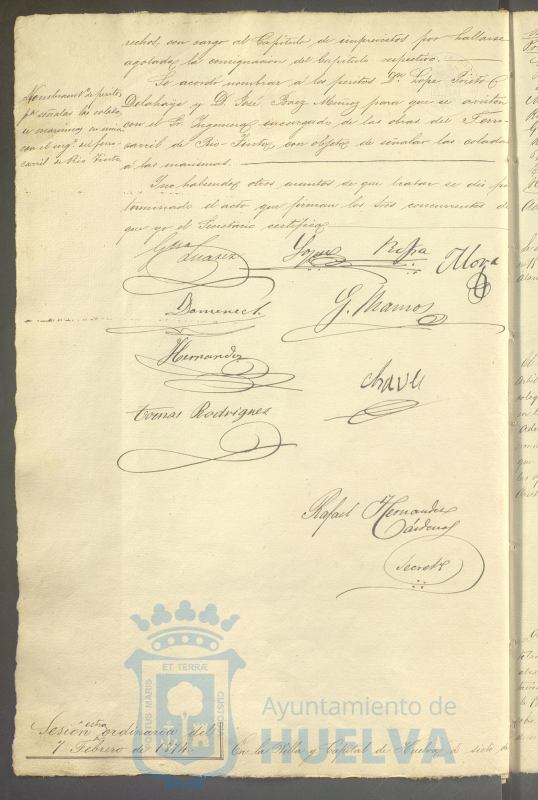 rechos, con cargo al Capitulo de imprevistos por hallarse
agotada la consignacion del Capitulo respectivo.
Se acordó nombrar á los peritos Dn. Lope Prieto
Delahaje y D. José Baez Muñoz para que se avisten
con el Sr. Ingeniero encargado de las obras del Ferro-
carril de Rio-Tinto, con objeto de señalar las coladas
á las marismas.
Y no habiendo otros asuntos de que tratar se dió por
terminado el acto que firman los Sres concurrentes de
que yo el Secretario certifico.
Nombramto. de peritos
pa. señalar las coladas
con el ingo. del ferro-
carril de Rio Tinto
Suarez
Mora
Domenech
G. Ramos
Hernandez
Chaves
Rodriguez
Rafael Hernandez
Cárdenas
Secreto
ET TERRÆ
MARIS
CUSTODIA
Ayuntamiento de
HUELVA
Sesión extraordinaria del
7 Febrero de 1874.
En la Villa y Capital de Huelva á siete de